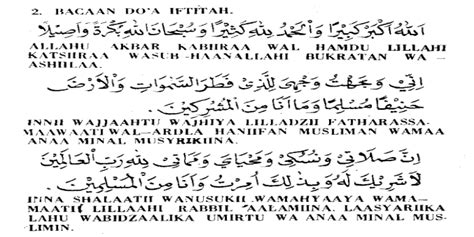 2. BACAAN DO'A IFTITAH.
اَللهُ اَكْبَرُ كَبِيْرًا وَالْحَمْدُ لِلّٰهِ كَثِيْرًا وَسُبْحَانَ اللهِ بُكْرَةً وَاَصِيْلًا
ALLAHU AKBAR KABIIRAA WAL HAMDU LILLAHI
KATSIIRAA WASUB-HAANALLAHI BUKRATAN WA-
ASHIILAA.
اِنِّيْ وَجَّهْتُ وَجْهِيَ لِلَّذِيْ فَطَرَ السَّمٰوَاتِ وَالْاَرْضَ
حَنِيْفًا مُسْلِمًا وَمَا اَنَا مِنَ الْمُشْرِكِيْنَ.
INNII WAJJAAHTU WAJHIYA LILLADZII FATHARASSA-
MAAWAATI WAL-ARDLA HANIIFAN MUSLIMAN WAMAA
ANAA MINAL MUSYRIKIINA.
اِنَّ صَلَاتِيْ وَنُسُكِيْ وَمَحْيَايَ وَمَمَاتِيْ لِلّٰهِ رَبِّ الْعَالَمِيْنَ
لَا شَرِيْكَ لَهُ وَبِذٰلِكَ اُمِرْتُ وَاَنَا مِنَ الْمُسْلِمِيْنَ.
INNA SHALAATII WANUSUKII WAMAHYAAYA WAMA-
MAATII LILLAAHI RABBIL 'AALAMIINA. LAASYARIIKA
LAHU WABIDZAALIKA UMIRTU WA ANAA MINAL MUS-
LIMIN.